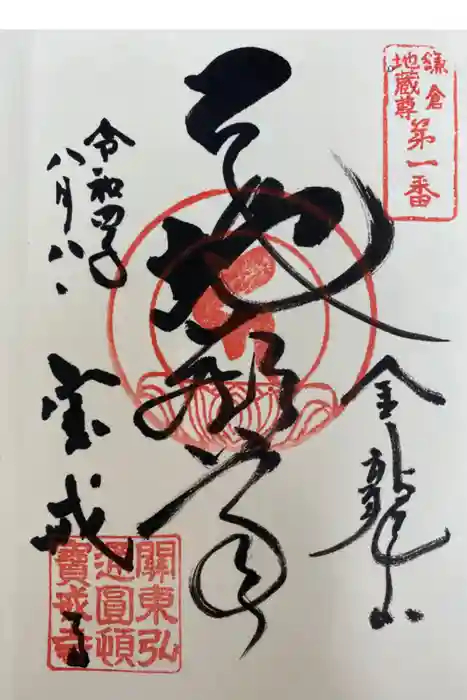 鎌倉
地蔵尊
第一番
金龍山
地蔵尊
令和四年
八月八日
宝戒寺
關東弘
通圓頓
寶戒寺